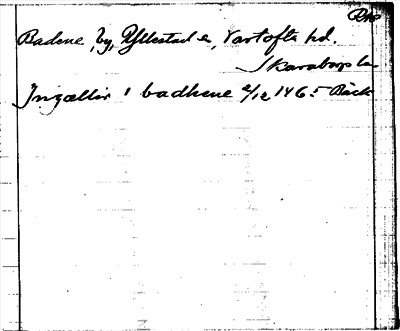 Badene, by, Yllestad s, Vartofts hd.
Skaraborgs län
Ingællir i badhene 2/12 1465 Bäck